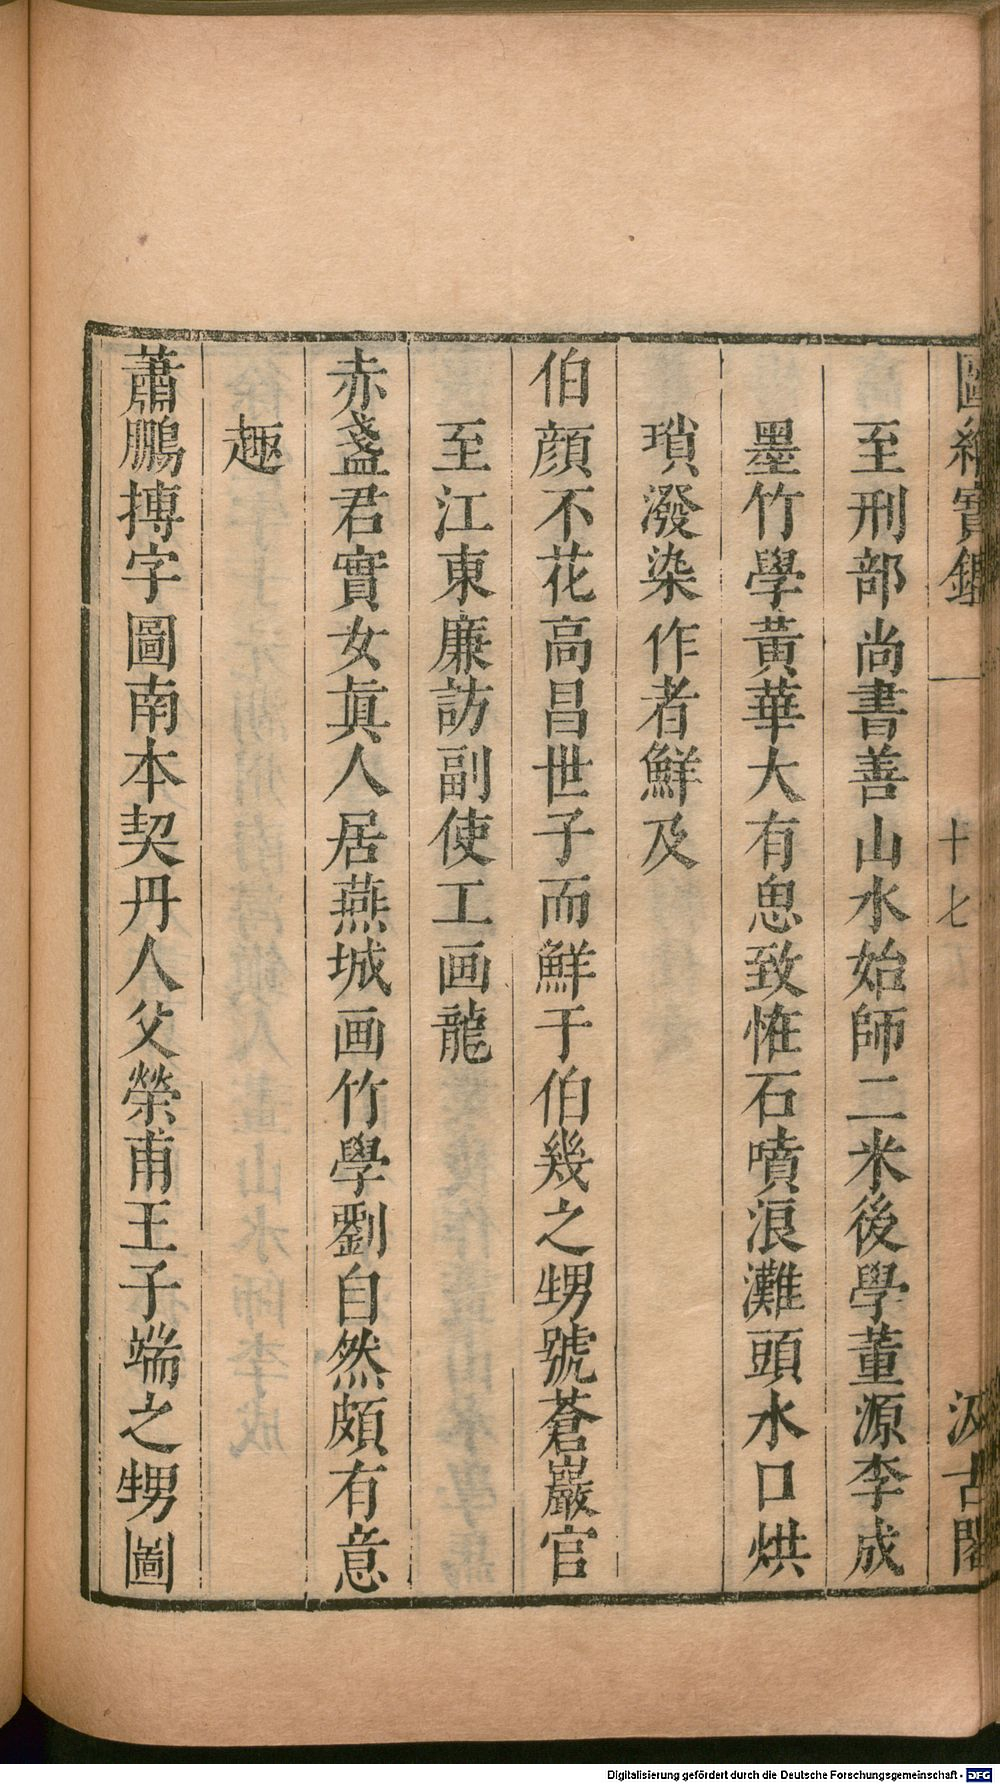 圖繪寶鑑
十七
汲古閣
至刑部尚書善山水始師二米後學董源李成
墨竹學黃華大有思致恠石噴浪灘頭水口烘
瑣潑染作者鮮及
伯顔不花高昌世子而鮮于伯幾之甥號蒼巖官
至江東廉訪副使工画龍
赤盞君實女眞人居燕城画竹學劉自然頗有意
趣
蕭鵬摶字圖南本契丹人父榮甫王子端之甥圖
Digitalisierung gefördert durch die Deutsche Forschungsgemeinschaft - DFG